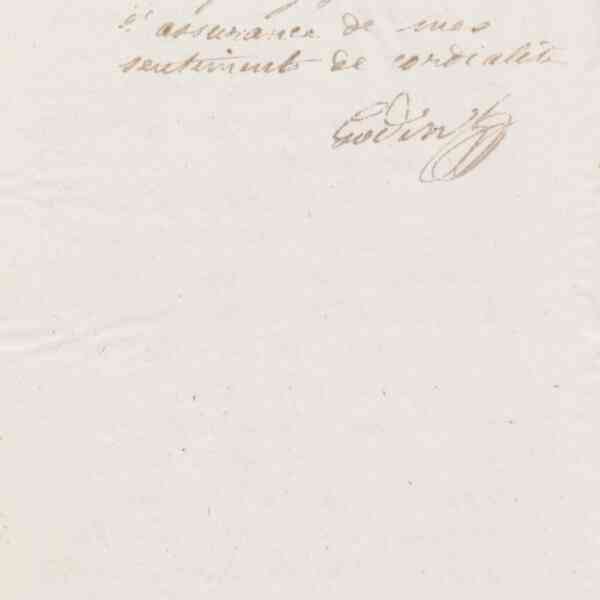 l'assurance de mes
sentiments de cordialité
Godin